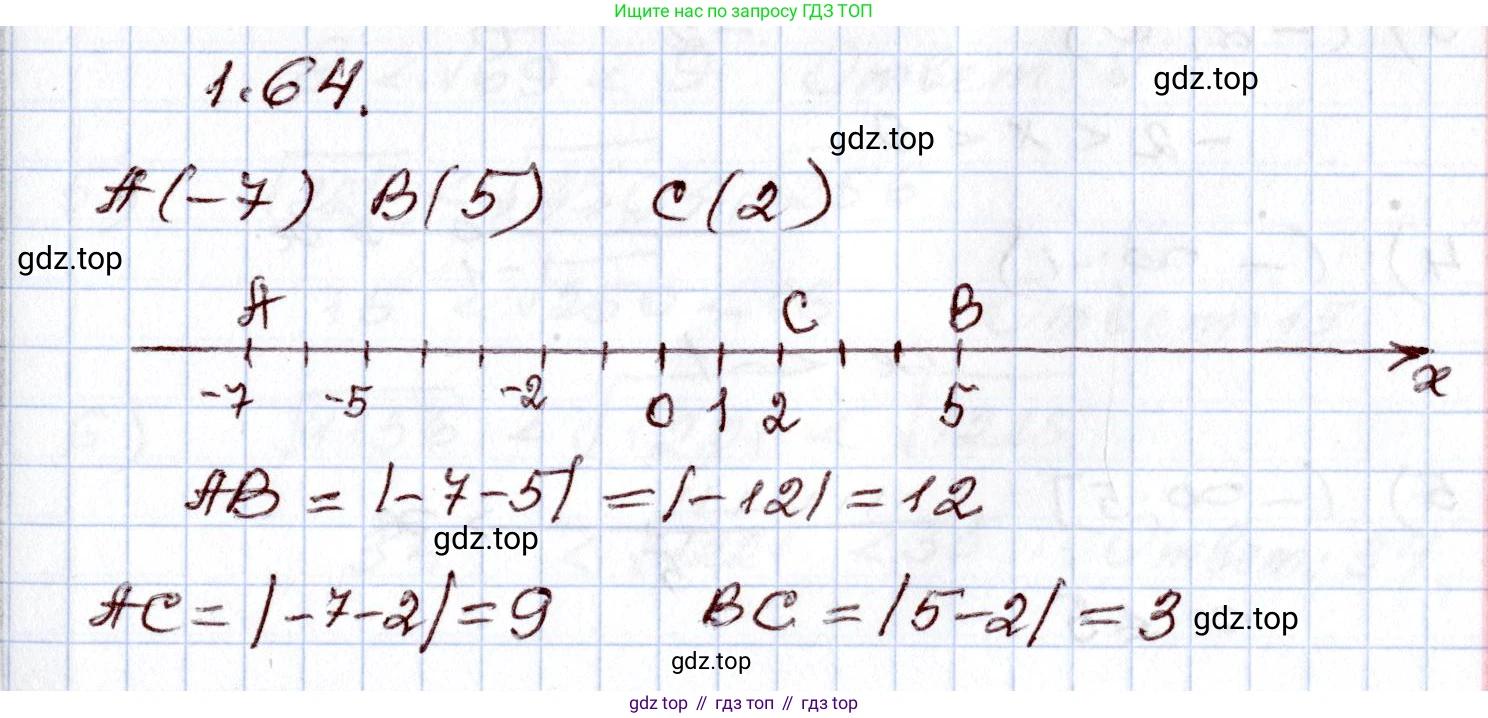 Ищите нас по запросу ГДЗ ТОП
1.64.
gdz.top
gdz.top
A(-7) B(5) C(2)
gdz.top
A C B
-7 -5 -2 0 1 2 5 x
AB = |-7-5| = |-12| = 12
gdz.top
AC = |-7-2| = 9 BC = |5-2| = 3 gdz.top
gdz.top
gdz top // гдз топ // gdz top